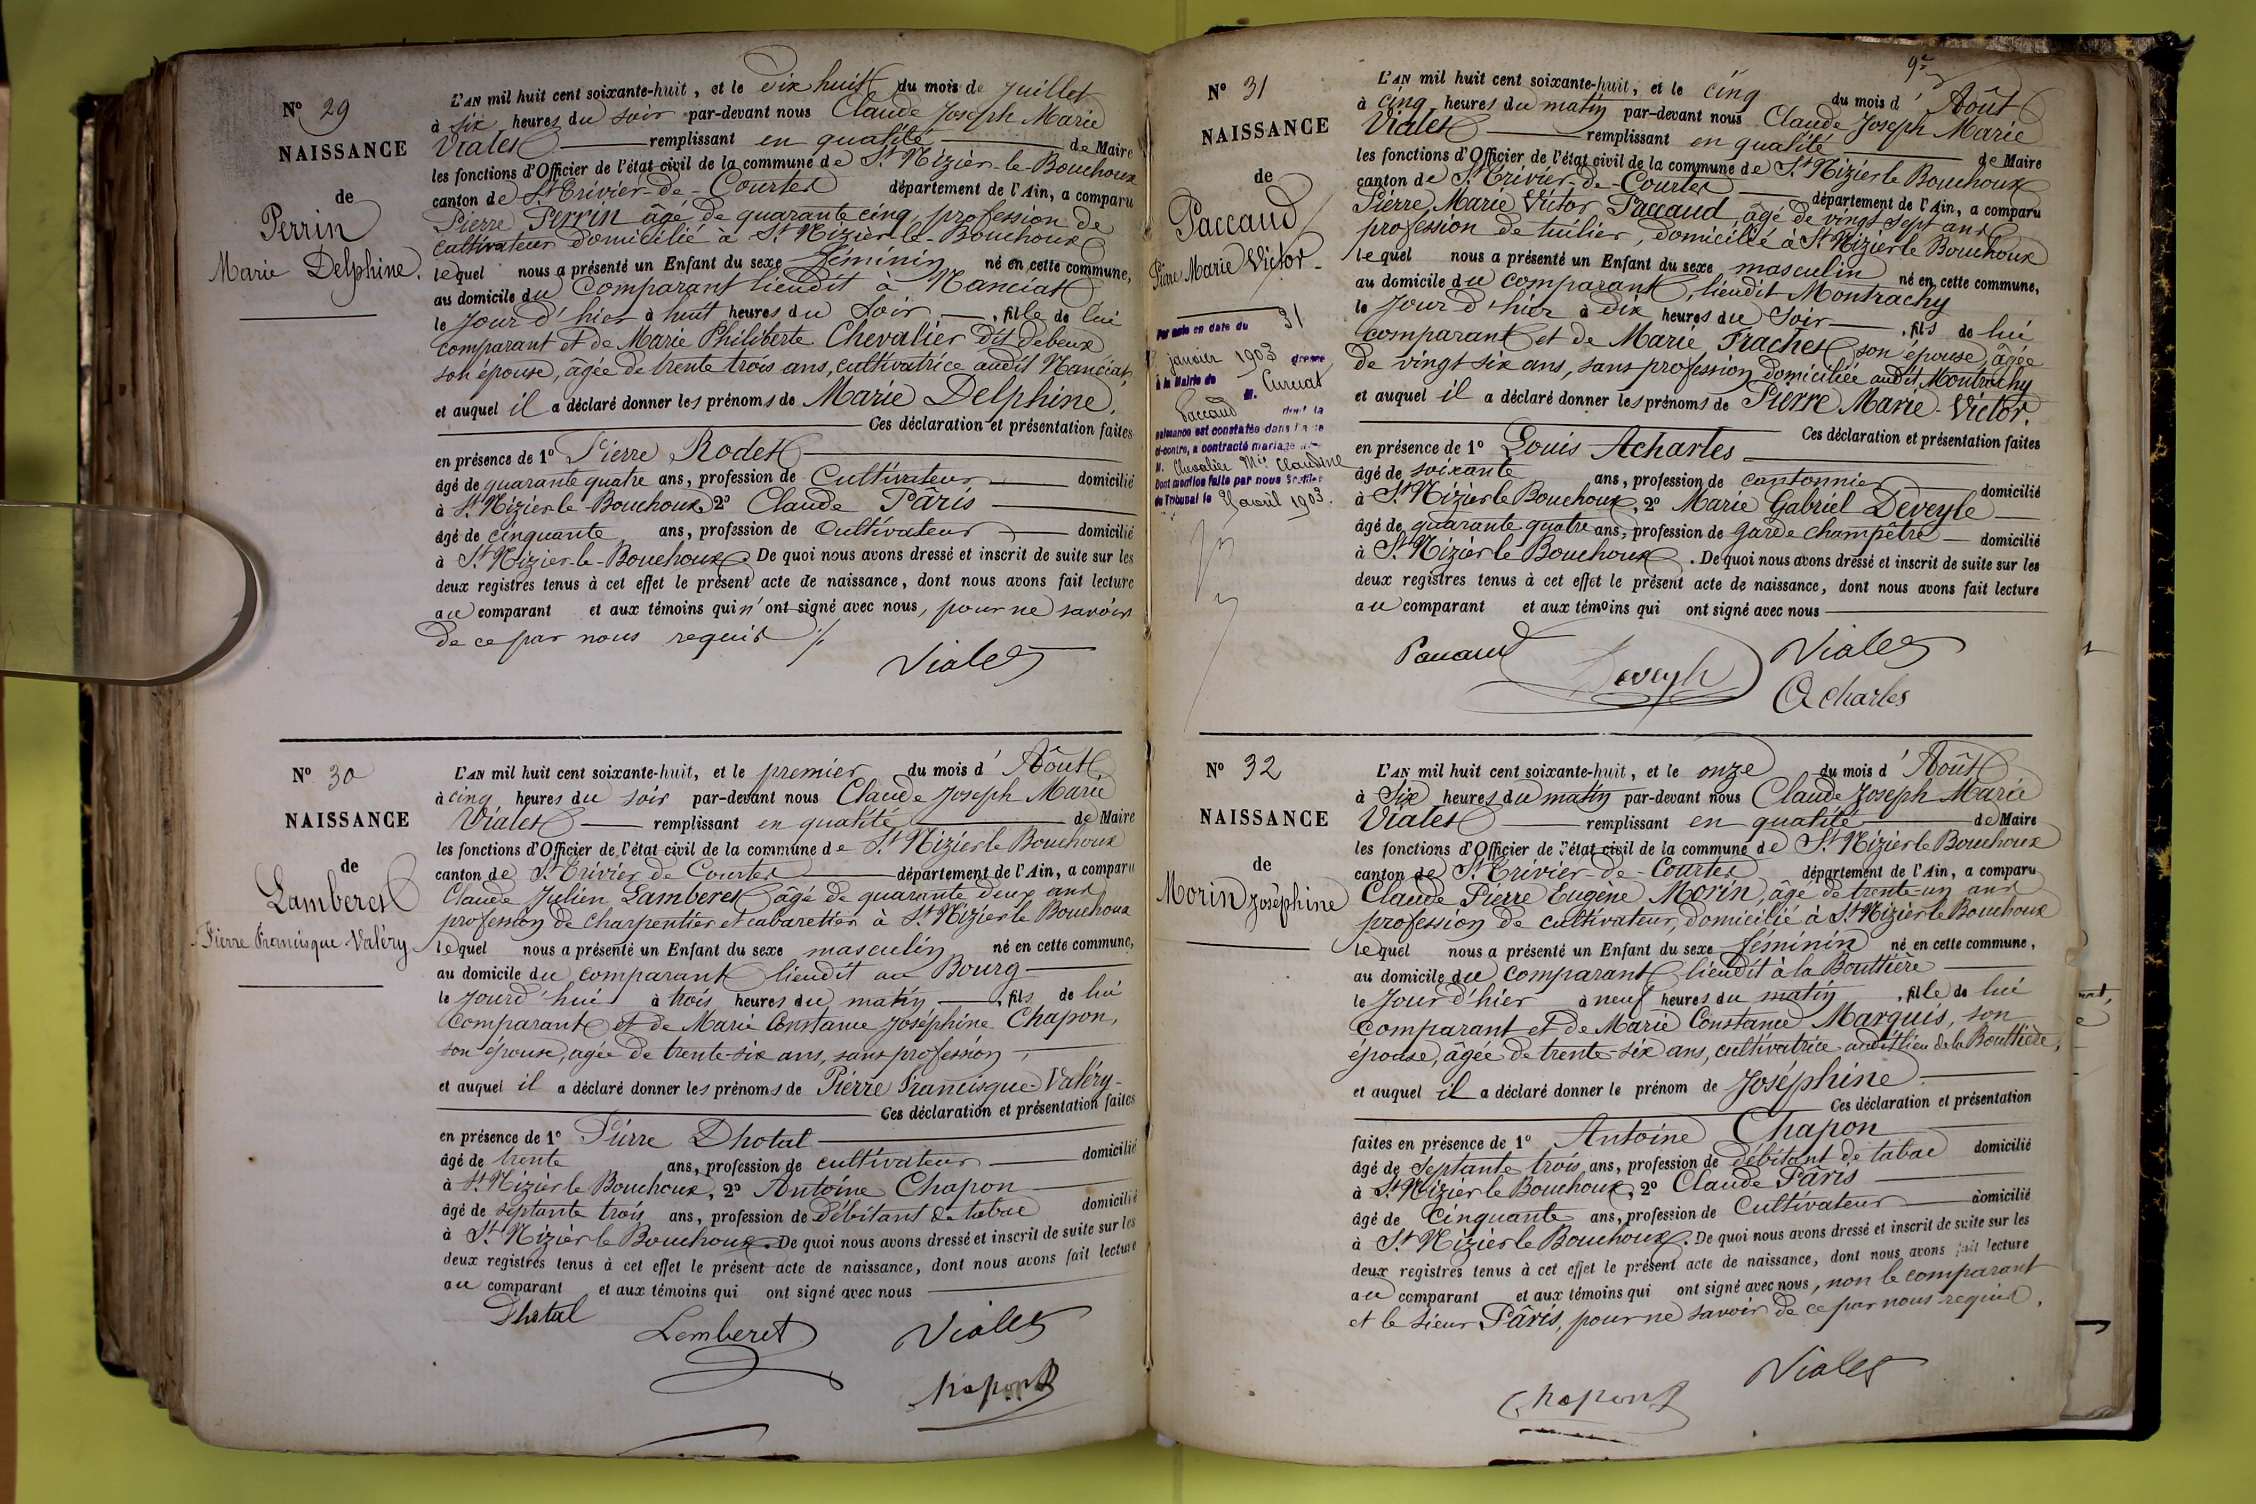 Nº 29
NAISSANCE
de
Perrin
Marie Delphine.
L'AN mil huit cent soixante-huit, et le dix huit du mois de Juillet
à six heures du soir par-devant nous Claude Joseph Marie
Vialet remplissant en qualité de Maire
les fonctions d'Officier de l'état civil de la commune de St Nizier-le-Bouchoux
canton de St Trivier-de-Courtes département de l'Ain, a comparu
Pierre Perrin âgé de quarante cinq, profession de
cultivateur domicilié à St Nizier-le-Bouchoux
lequel nous a présenté un Enfant du sexe féminin né en cette commune,
au domicile du comparant lieudit à Manciat
le jour d'hier à huit heures du soir, fille de lui
comparant et de Marie Philiberte Chevalier dit debeux
son épouse, âgée de trente trois ans, cultivatrice audit Manciat,
et auquel il a déclaré donner les prénoms de Marie Delphine.
Ces déclaration et présentation faites
en présence de 1º Pierre Rodet
âgé de quarante quatre ans, profession de Cultivateur domicilié
à St Nizier-le-Bouchoux 2º Claude Pâris
âgé de cinquante ans, profession de Cultivateur domicilié
à St Nizier-le-Bouchoux. De quoi nous avons dressé et inscrit de suite sur les
deux registres tenus à cet effet le présent acte de naissance, dont nous avons fait lecture
au comparant et aux témoins qui n'ont signé avec nous, pour ne savoir
de ce par nous requis ./.
Vialet
Nº 30
NAISSANCE
de
Lamberet
Pierre Francisque Valéry
L'AN mil huit cent soixante-huit, et le premier du mois d'Aôut,
à cinq heures du soir par-devant nous Claude Joseph Marie
Vialet remplissant en qualité de Maire
les fonctions d'Officier de l'état civil de la commune de St Nizier le Bouchoux
canton de St Trivier de Courtes département de l'Ain, a comparu
Claude Julien Lamberet âgé de quarante deux ans
profession de charpentier et cabaretier à St Nizier le Bouchoux
lequel nous a présenté un Enfant du sexe masculin né en cette commune,
au domicile du comparant lieudit au Bourg
le jourd'hui à trois heures du matin, fils de lui
comparant et de Marie Constance Joséphine Chapon,
son épouse, agée de trente-six ans, sans profession,
et auquel il a déclaré donner les prénoms de Pierre Francisque Valéry
Ces déclaration et présentation faites
en présence de 1º Pierre Dhotal
âgé de trente ans, profession de cultivateur domicilié
à St Nizier le Bouchoux, 2º Antoine Chapon
âgé de septante trois ans, profession de Débitant de tabac domicilié
à St Nizier le Bouchoux. De quoi nous avons dressé et inscrit de suite sur les
deux registres tenus à cet effet le présent acte de naissance, dont nous avons fait lecture
au comparant et aux témoins qui ont signé avec nous
Dhotal
Lamberet
Vialet
Chapon
9e
Nº 31
NAISSANCE
de
Paccaud
Pierre Marie Victor
Par acte en date du 31
janvier 1903 dressé
à la Mairie de Curciat
M.
Paccaud dont la
naissance est constatée dans l'acte
ci-contre, a contracté mariage avec
M. Chevalier Mie Claudine
Dont mention faite par nous Greffier
du Tribunal le avril 1903.
L'AN mil huit cent soixante-huit, et le cinq du mois d'Aôut
à cinq heures du matin par-devant nous Claude Joseph Marie
Vialet remplissant en qualité de Maire
les fonctions d'Officier de l'état civil de la commune de St Nizier le Bouchoux
canton de St Trivier-de-Courtes département de l'Ain, a comparu
Pierre Marie Victor Paccaud, âgé de vingt sept ans
profession de tuilier, domicilié à St Nizier le Bouchoux
lequel nous a présenté un Enfant du sexe masculin né en cette commune,
au domicile du comparant, lieudit Montrachy
le jour d'hier à dix heures du soir, fils de lui
comparant et de Marie Trachet son épouse, âgée
de vingt six ans, sans profession domiciliée audit Montrachy
et auquel il a déclaré donner les prénoms de Pierre Marie-Victor.
Ces déclaration et présentation faites
en présence de 1º Louis Acharles
âgé de soixante ans, profession de cantonnier domicilié
à St Nizier le Bouchoux, 2º Marie Gabriel Deveyle
âgé de quarante quatre ans, profession de Garde champêtre domicilié
à St Nizier le Bouchoux. De quoi nous avons dressé et inscrit de suite sur les
deux registres tenus à cet effet le présent acte de naissance, dont nous avons fait lecture
au comparant et aux témoins qui ont signé avec nous
Paccaud
Deveyle
Vialet
Acharles
Nº 32
NAISSANCE
de
Morin Joséphine
L'AN mil huit cent soixante-huit, et le onze du mois d'Aôut
à Six heures du matin par-devant nous Claude Joseph Marie
Vialet remplissant en qualité de Maire
les fonctions d'Officier de l'état civil de la commune de St Nizier le Bouchoux
canton de St Trivier-de-Courtes département de l'Ain, a comparu
Claude Pierre Eugène Morin, âgé de trente-un ans
profession de cultivateur, domicilié à St Nizier le Bouchoux
lequel nous a présenté un Enfant du sexe féminin né en cette commune,
au domicile du comparant lieudit à la Bouttière
le jour d'hier à neuf heures du matin, fille de lui
comparant et de Marie Constance Marquis, son
épouse, âgée de trente-six ans, cultivatrice audit lieu de la Bouttière,
et auquel il a déclaré donner le prénom de Joséphine.
Ces déclaration et présentation
faites en présence de 1º Antoine Chapon
âgé de septante trois ans, profession de débitant de tabac domicilié
à St Nizier le Bouchoux, 2º Claude Pâris
âgé de Cinquante ans, profession de Cultivateur domicilié
à St Nizier le Bouchoux. De quoi nous avons dressé et inscrit de suite sur les
deux registres tenus à cet effet le présent acte de naissance, dont nous avons fait lecture
au comparant et aux témoins qui ont signé avec nous, non le comparant
et le sieur Pâris, pour ne savoir de ce par nous requis.
Vialet
Chapon